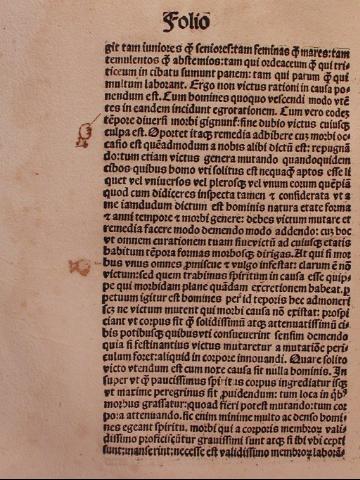 Folio
git tam iuniores q̄ seniores: tam feminas q̄ mares: tam
temulentos q̄ abstemios: tam qui ordeaceum q̄ qui tri-
ticeum in cibatu sumunt panem: tam qui parum q̄ qui
multum laborant. Ergo non victus rationi in causa po
nendum est. Cum homines quoquo vescendi modo vtē
tes in eandem incidunt egrotationem. Cum vero eodez
tēpore diuersi morbi gignunt̄: sine dubio victus cuiusq̄
culpa est. Oportet itaq̄ remedia adhibere cuz morbi oc-
casio est quēadmodum a nobis alibi dictū est: repugnā
do: tum etiam victus genera mutando quandoquidem
cibos quibus homo vti solitus est nequaq̄ aptos esse li
quet vel vniuersos vel plerosq̄ vel vnum eorum quēpiā
quod cum didiceris inspecta tamen & considerata vt a
me iamdudum dictum est hominis natura etate forma
& anni tempore & morbi genere: debes victum mutare et
remedia facere modo demendo modo addendo: cuz hoc
vt omnem curationem tuam siue victū ad cuiusq̄ etatis
habitum tēpora formas morbosq̄ dirigas. At qui si mor
bus vnus omnes promiscue & vulgo infestat: clarum ē nō
victum: sed quem trahimus spiritum in causa esse quip-
pe qui morbidam plane quādam excretionem habeat. p̄
petuum igitur est homines per id tēporis hec admoneri
sez ne victum mutent qui morbi causa nō existat: prospi
ciant vt corpus sit q̄ solidissimū atq̄ attenuatissimū ci-
bis potibusq̄ quibus vti consueuerint sensim demendo
quia si festinantius victus mutaretur a mutatiōe peri-
culum foret: aliquid in corpore innouandi. Quare solito
victo vtendum est cum noxe causa sit nulla hominis. In
super vt q̄ paucissimus spirit is corpus ingrediatur isq̄
vt maxime peregrinus sit p̄uidendum: tum loca in q̄b
morbus grassatur: quoad fieri potest mutando: tum cor
po: a attenuando. sic enim minime multo ac denso homi-
nes egeant spiritu. morbi qui a corporis membroꝝ vali
dissimo proficiscūtur grauissimi sunt atq̄ si ibi vbi cepti
sunt: manserint: necesse est validissimo membroꝝ laborā-